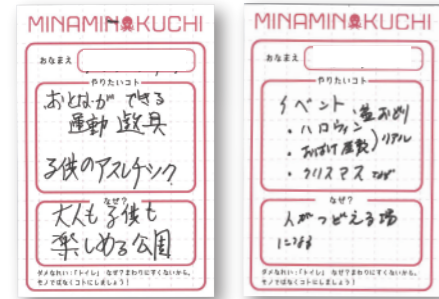 MINAMIN KUCHI
おなまえ
やりたいコト
おとなが できる
運動 遊具
子供のアスレチック
なぜ?
大人も子供も
楽しめる公園
ダメなれい:「トイレ」 なぜ?まわりにすくないから。
モノではなくコトにしましょう!
MINAMIN KUCHI
おなまえ
やりたいコト
イベント ・盆おどり
・ハロウィン
・おばけ屋敷 ) リアル
・クリスマス など
なぜ?
人がつどえる場
になる
ダメなれい:「トイレ」 なぜ?まわりにすくないから。
モノではなくコトにしましょう!